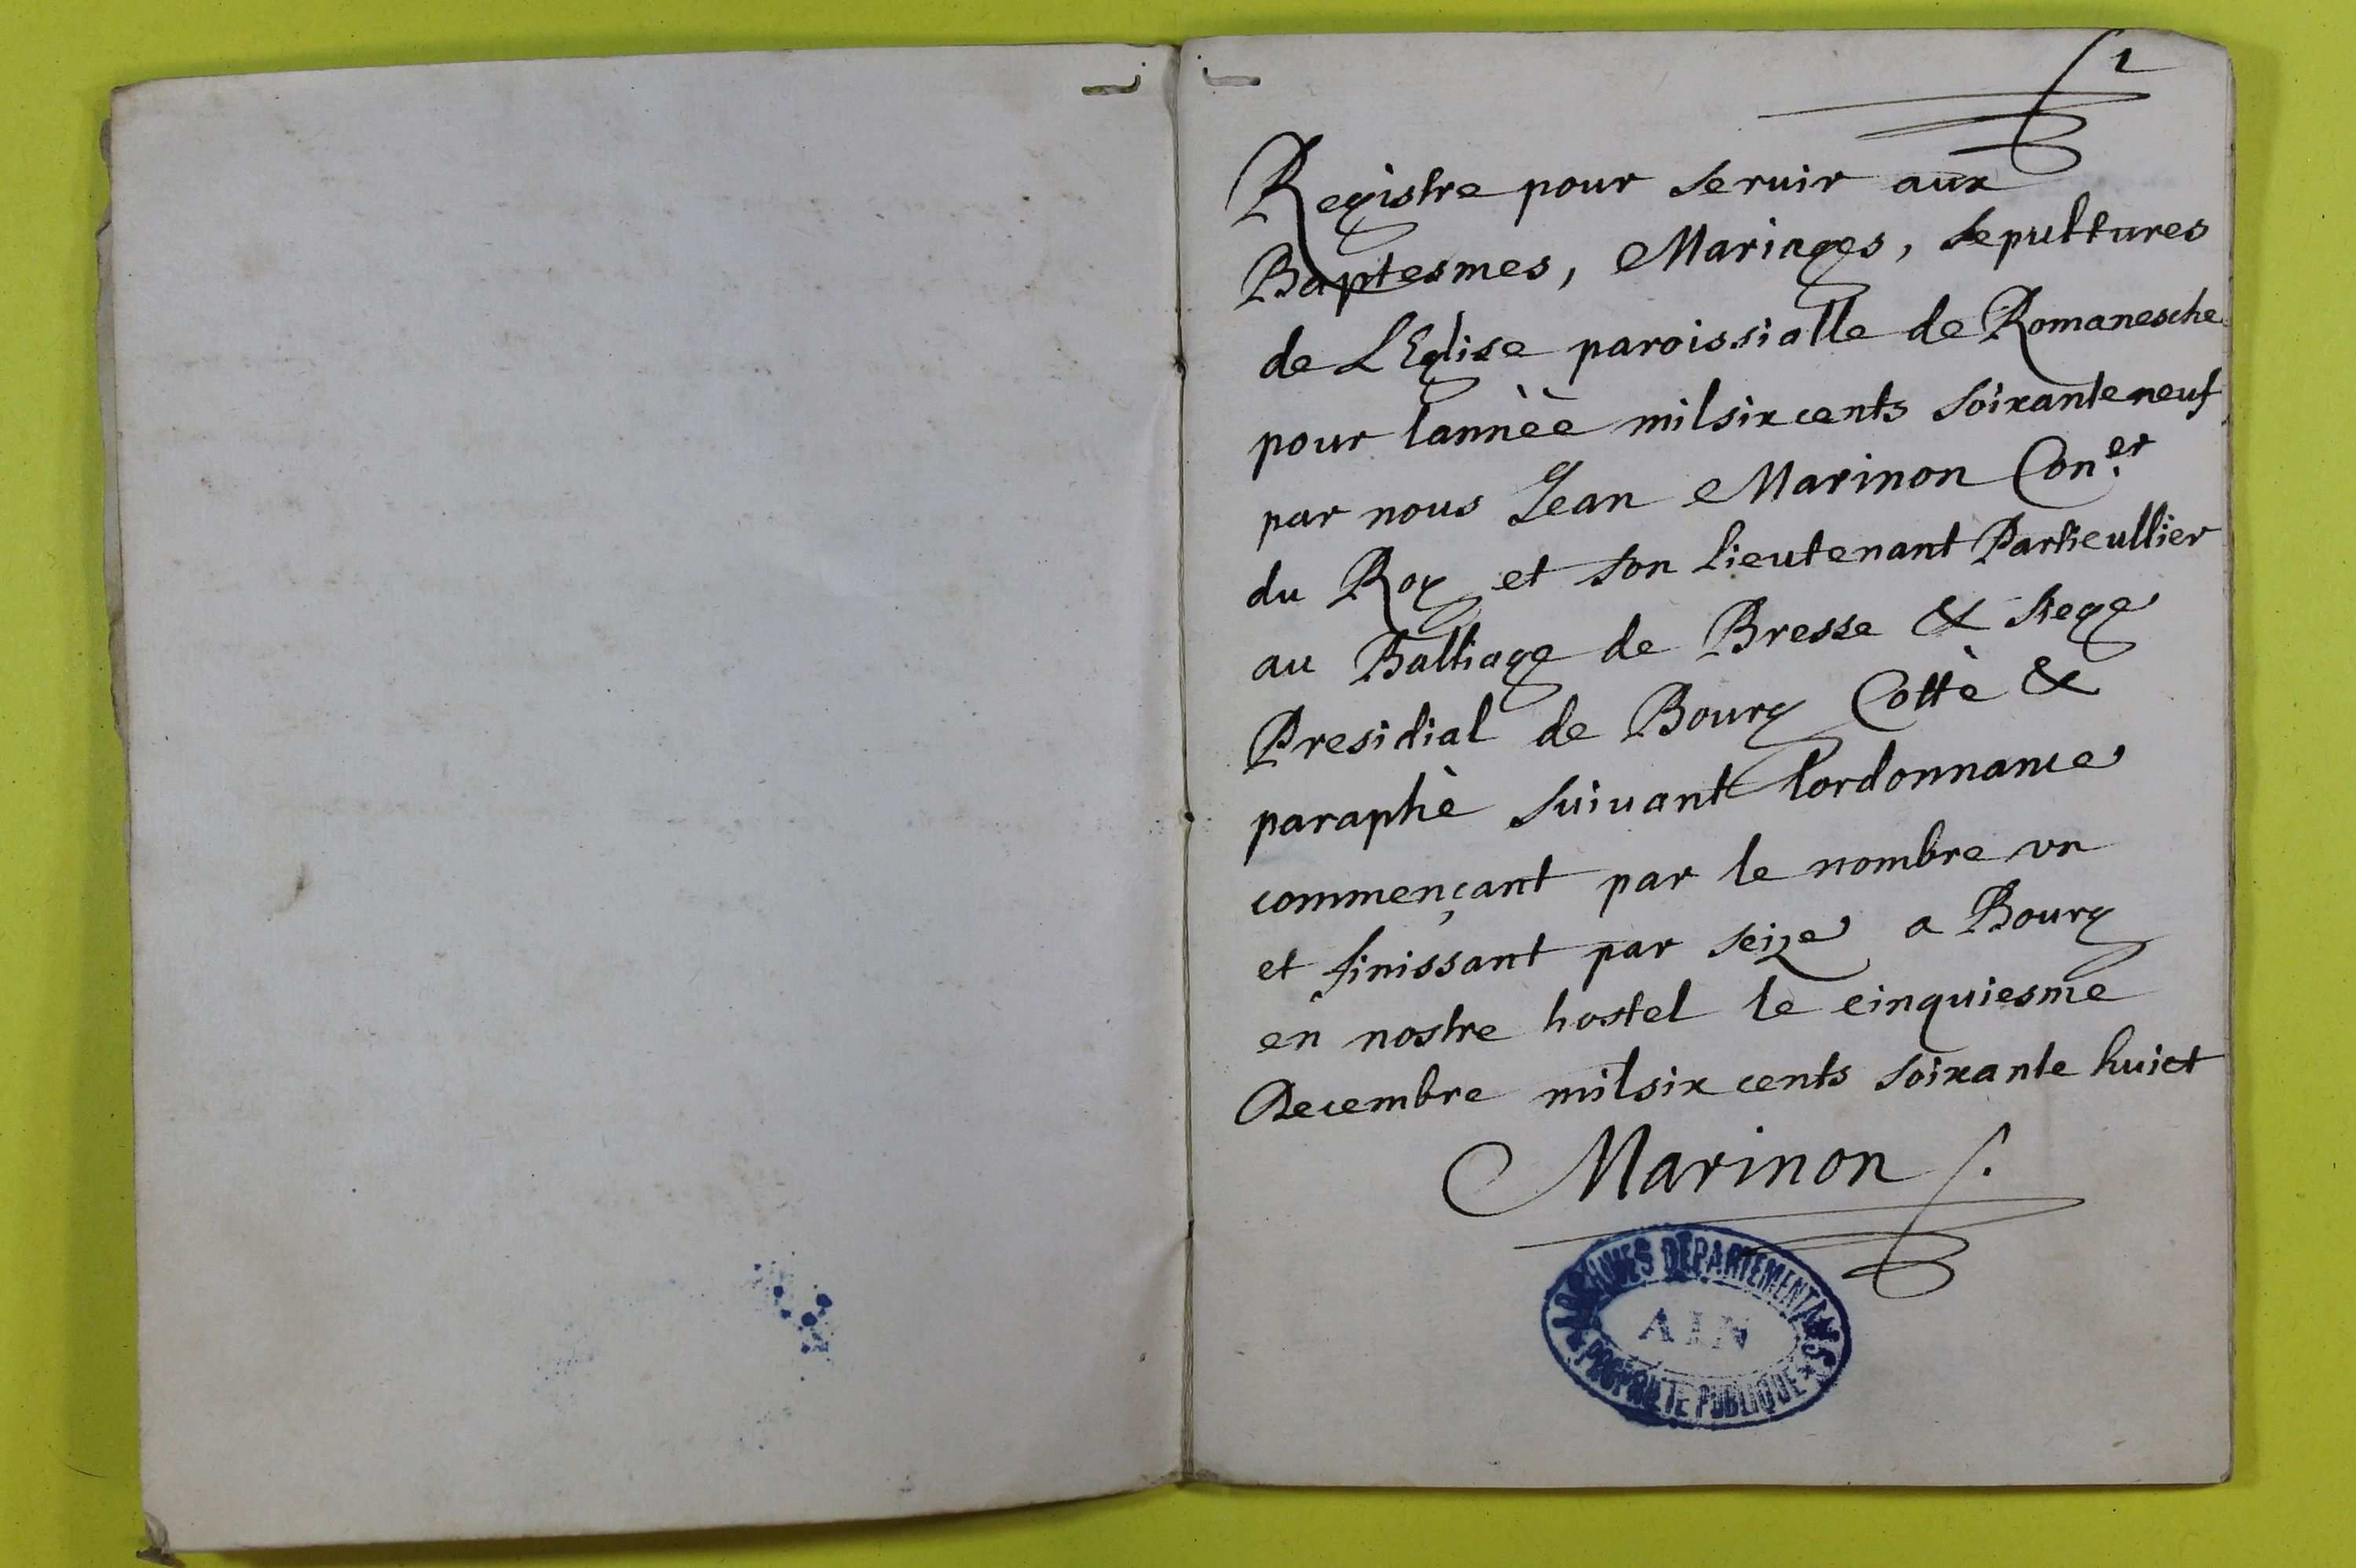 1
Registre pour seruir aux
Baptesmes, Mariages, sepultures
de LEglise paroissialle de Romanesche
pour lannèè milsixcents soixanteneuf
par nous Jean Marinon Con.er
du Roy et son Lieutenant Particullier
au Balliage de Bresse & siege
Presidial de Bourg Cottè &
paraphè suiuant lordonnance
commençant par le nombre vn
et finissant par seize a Bourg
en nostre hostel le cinquiesme
Decembre milsix cents soixante huict
Marinon
ARCHIVES DÉPARTEMENTALES
AIN
PROPRIÉTÉ PUBLIQUE